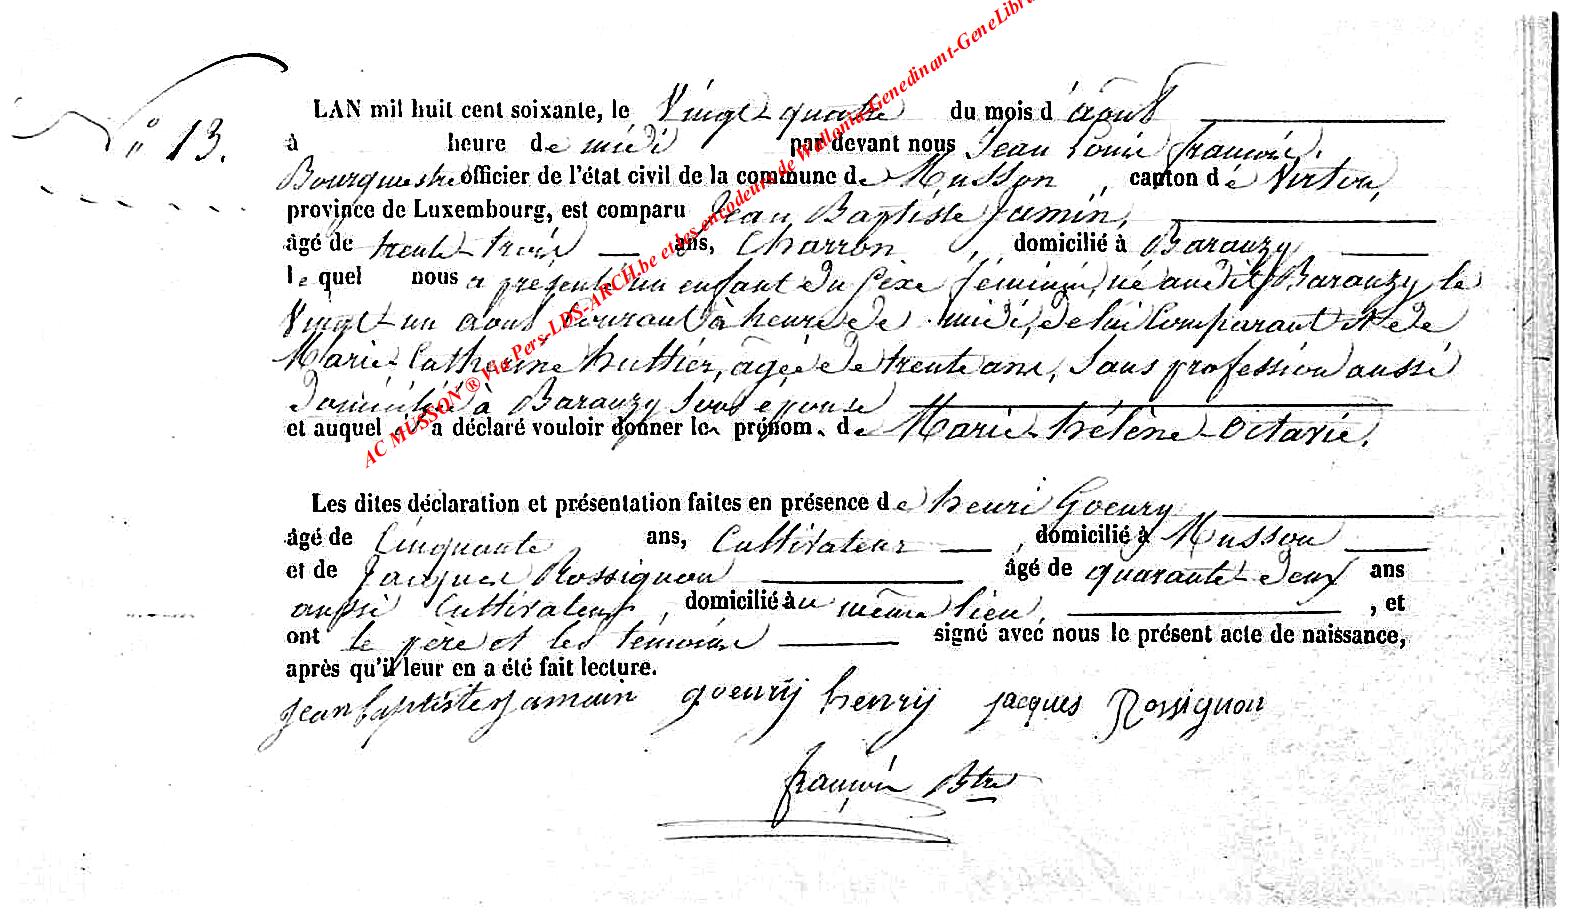 N° 13.
LAN mil huit cent soixante, le Vingt-quatre du mois d'août
à heure de midi par devant nous Jean Louis françois,
Bourgmestre officier de l'état civil de la commune de Musson, canton de Virton,
province de Luxembourg, est comparu Jean Baptiste Jamin,
âgé de trente-trois ans, Charron, domicilié à Baranzy
lequel nous a présenté un enfant du sexe féminin, né audit Baranzy le
Vingt-un août courant à heure de midi, de lui Comparant et de
Marie-Catherine huttier, âgée de trente ans, sans profession aussi
domiciliée à Baranzy son épouse
et auquel a déclaré vouloir donner les prénom. de Marie-hélène-Octavie.
Les dites déclaration et présentation faites en présence de henri Goeury
âgé de Cinquante ans, Cultivateur, domicilié à Musson
et de Jacques Rossignon âgé de quarante-deux ans
aussi Cultivateur, domicilié au même lieu, , et
ont le père et les témoins signé avec nous le présent acte de naissance,
après qu'il leur en a été fait lecture.
jean baptiste jamain goeury henry jacques Rossignon
françois Btre
AC MUSSON ® Via Pers-LDS-ARCH.be et des encodeurs de Wallonia-Genedinant-GeneLibr